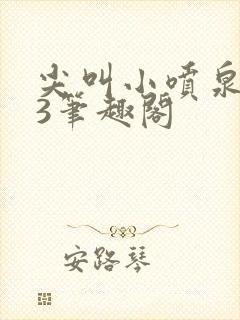 尖叫小喷泉
3笔趣阁
安路琴